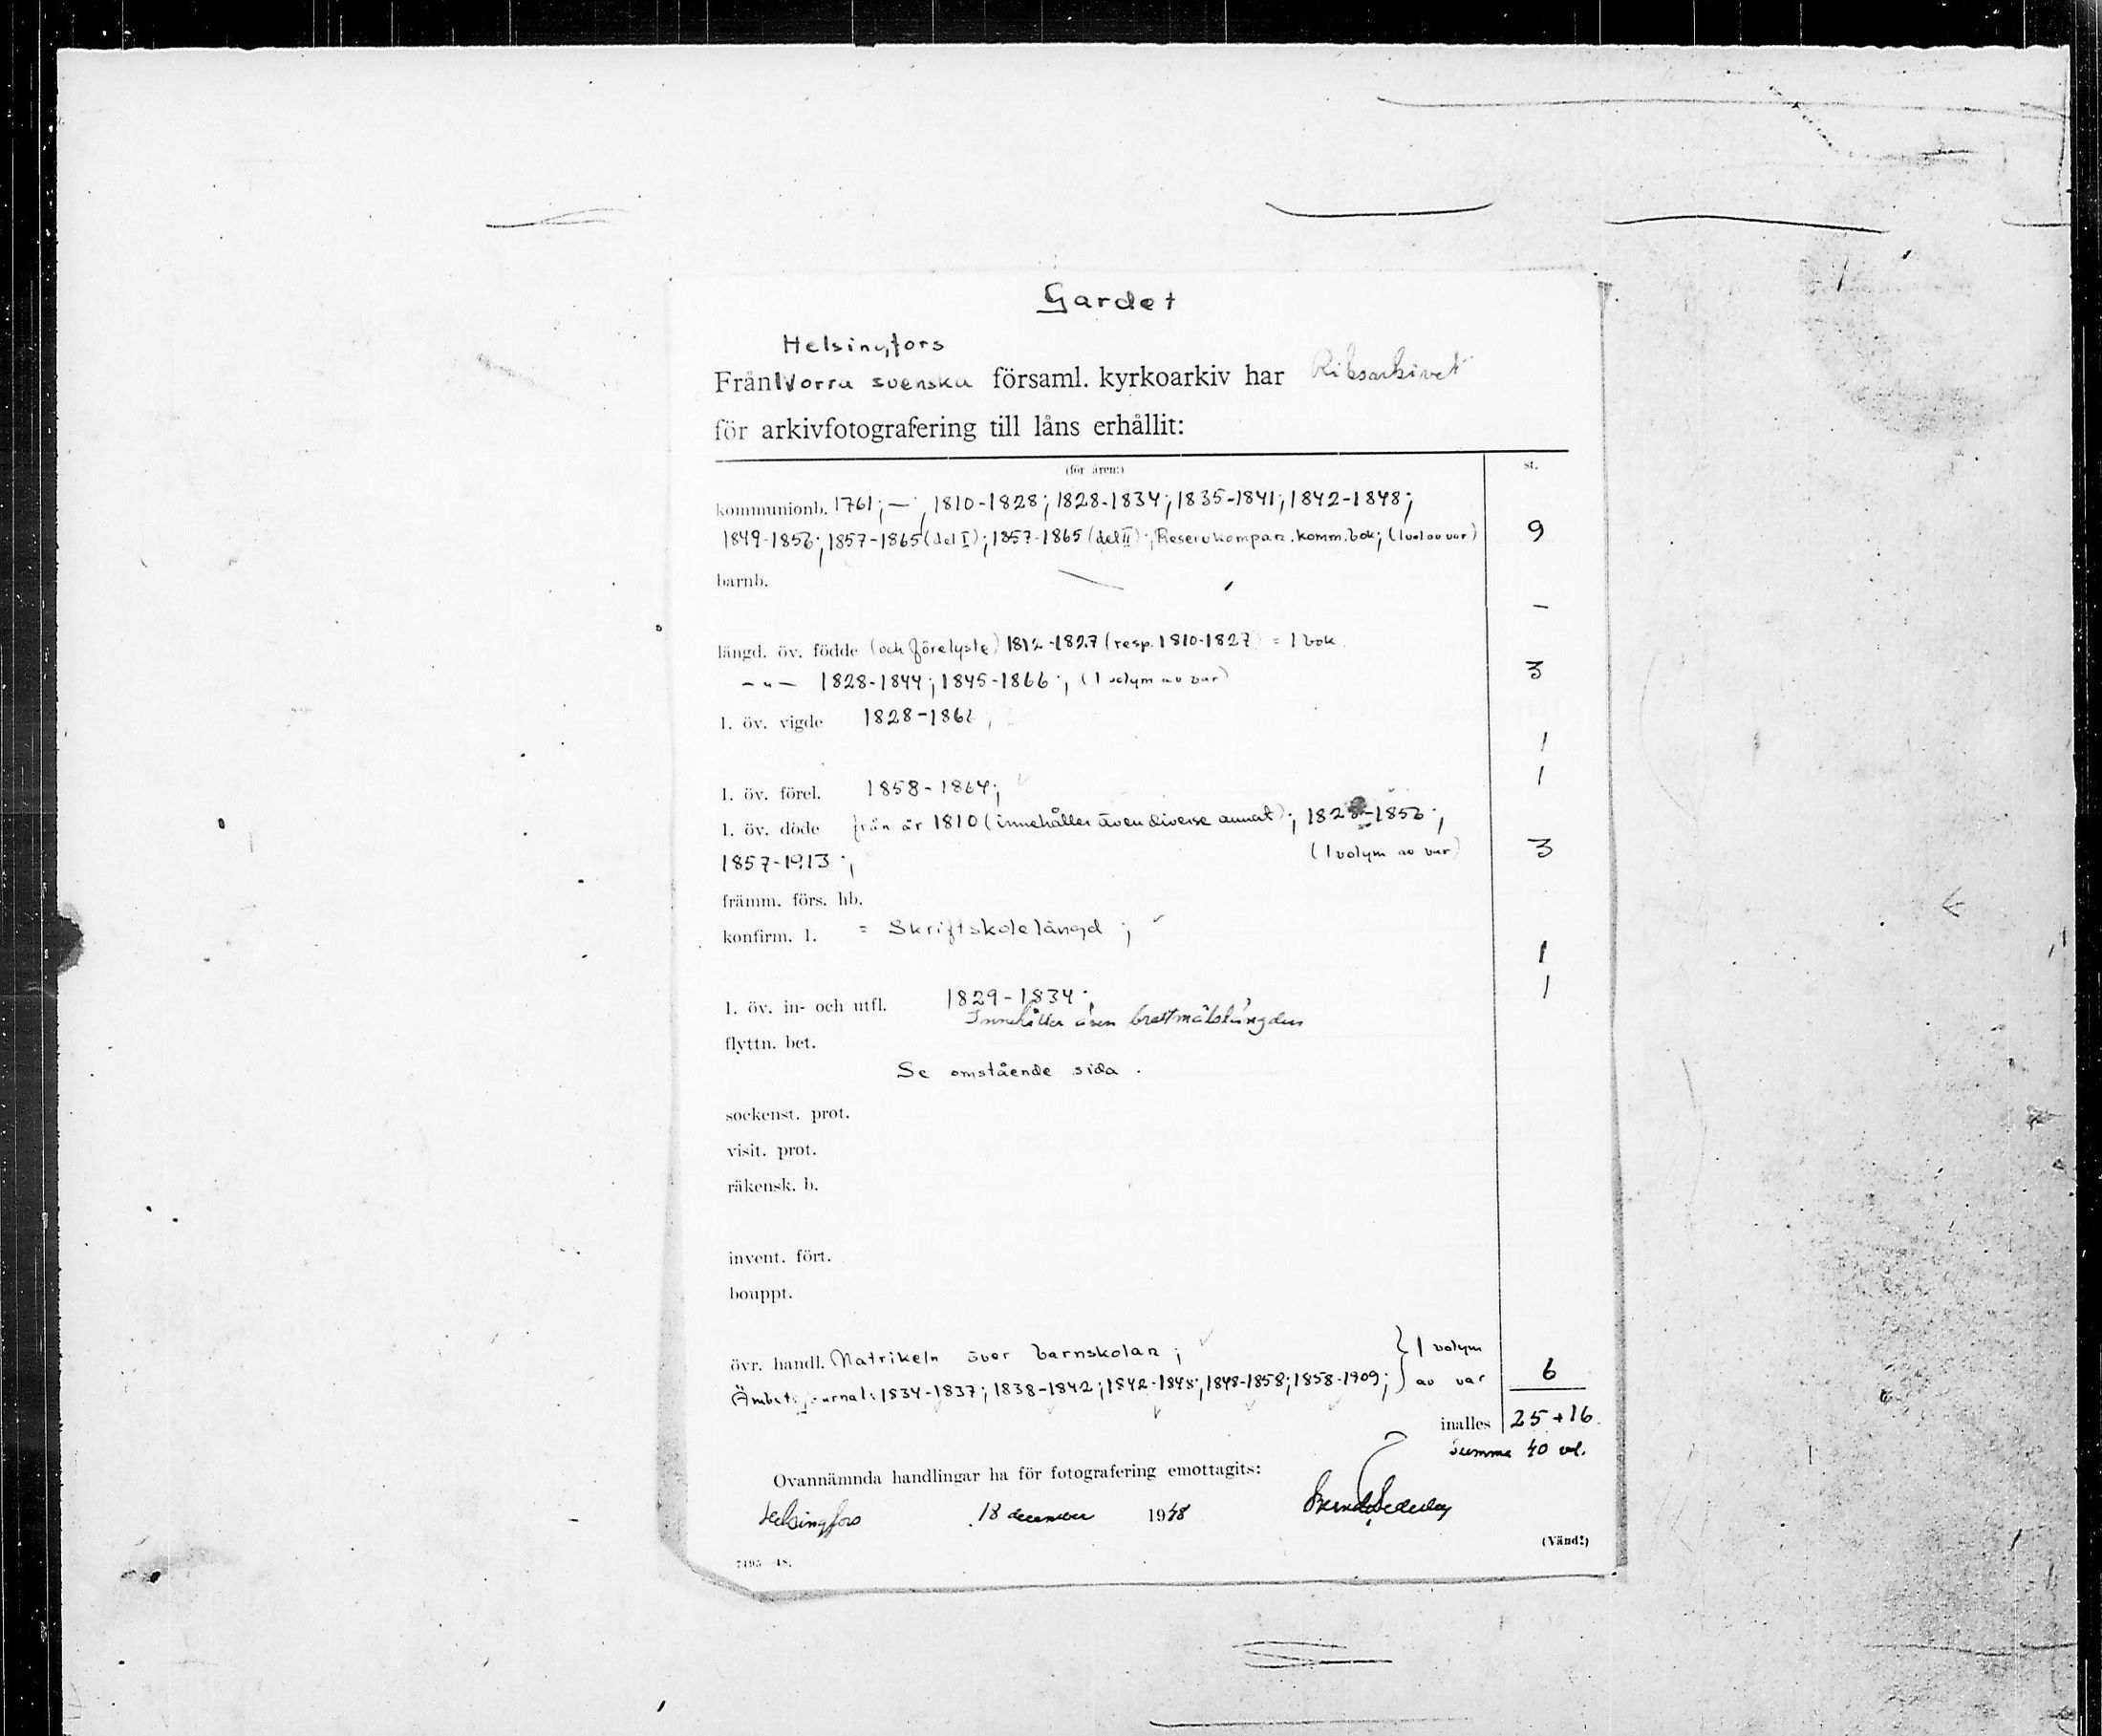 Gardet
Helsingfors
Från Norra svenska församl. kyrkoarkiv har Riksarkivet
för arkivfotografering till låns erhållit:
(för åren:) st.
kommunionb. 1761; — ; 1810-1828; 1828-1834; 1835-1841; 1842-1848;
1849-1856; 1857-1865 (del I); 1857-1865 (del II); Reservkompan. komm.bok; (1 vol av var) 9
barnb. —
längd. öv. födde (och förelyste) 1812-1827 (resp. 1810-1827) = 1 bok
-"- 1828-1844; 1845-1866; (1 volym av var) 3
l. öv. vigde 1828-186 ; 1
l. öv. förel. 1858-1864; 1
l. öv. döde från år 1810 (innehåller även diverse annat); 1828-1856;
1857-1913; (1 volym av var) 3
främm. förs. hb.
konfirm. l. = Skriftskolelängd; 1
l. öv. in- och utfl. 1829-1834; 1
Innehåller även brottmålslängden
flyttn. bet.
Se omstående sida.
sockenst. prot.
visit. prot.
räkensk. b.
invent. fört.
bouppt.
övr. handl. Matrikeln över barnskolan; } 1 volym
Ämbetsjournal: 1834-1837; 1838-1842; 1842-1848; 1848-1858; 1858-1909; } av var 6
inalles 25 + 16.
Summa 40 vol.
Ovannämnda handlingar ha för fotografering emottagits:
Helsingfors 18 december 1948
(Vänd!)
7495 48.